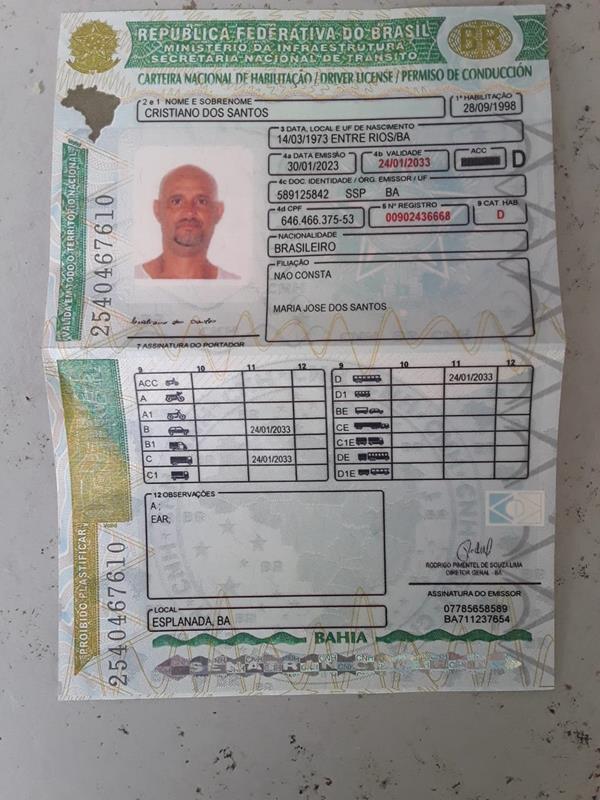 REPÚBLICA FEDERATIVA DO BRASIL
MINISTÉRIO DA INFRAESTRUTURA
SECRETARIA NACIONAL DE TRÂNSITO
BR
CARTEIRA NACIONAL DE HABILITAÇÃO / DRIVER LICENSE / PERMISO DE CONDUCCIÓN
2 e 1 NOME E SOBRENOME
CRISTIANO DOS SANTOS
1ª HABILITAÇÃO
28/09/1998
3 DATA, LOCAL E UF DE NASCIMENTO
14/03/1973 ENTRE RIOS/BA
4a DATA EMISSÃO
30/01/2023
4b VALIDADE
24/01/2033
ACC
D
4c DOC. IDENTIDADE / ÓRG. EMISSOR / UF
589125842 SSP BA
4d CPF
646.466.375-53
5 Nº REGISTRO
00902436668
9 CAT. HAB
D
NACIONALIDADE
BRASILEIRO
FILIAÇÃO
NAO CONSTA
MARIA JOSE DOS SANTOS
7 ASSINATURA DO PORTADOR
VÁLIDA EM TODO O TERRITÓRIO NACIONAL
2540467610
9 10 11 12
ACC
A
A1
B 24/01/2033
B1
C 24/01/2033
C1
9 10 11 12
D 24/01/2033
D1
BE
CE
C1E
DE
D1E
12 OBSERVAÇÕES
A ;
EAR;
RODRIGO PIMENTEL DE SOUZA LIMA
DIRETOR GERAL - BA
ASSINATURA DO EMISSOR
07785658589
BA711237654
LOCAL
ESPLANADA, BA
PROIBIDO PLASTIFICAR
2540467610
BAHIA